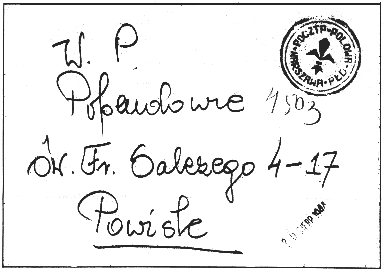 W. P.
Popaudowie 4503
św. Fr. Salezego 4-17
Powiśle
POCZTA POLOWA
WARSZAWA PŁD.